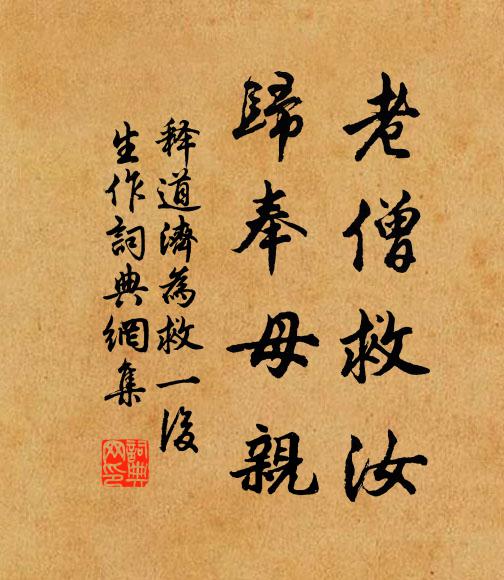 老僧救汝
歸奉母親
释道濟為救一後
生作詞典網集
詞典網印